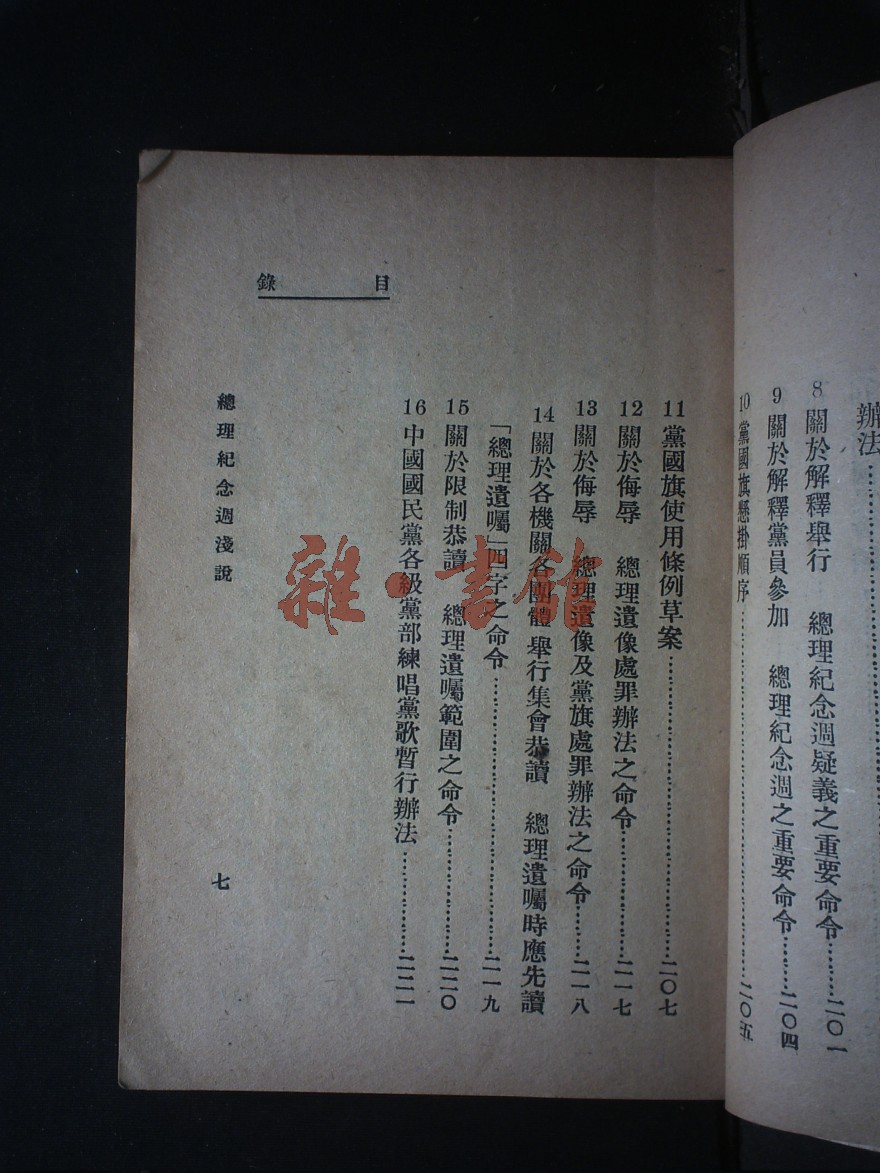 辦法
8 關於解釋舉行 總理紀念週疑義之重要命令…………二〇一
9 關於解釋黨員參加 總理紀念週之重要命令…………二〇四
10 黨國旗懸掛順序…………二〇五
目錄
11 黨國旗使用條例草案…………二〇七
12 關於侮辱 總理遺像處罪辦法之命令…………二一七
13 關於侮辱 總理遺像及黨旗處罪辦法之命令…………二一八
14 關於各機關各團體舉行集會恭讀 總理遺囑時應先讀
「總理遺囑」四字之命令…………二一九
15 關於限制恭讀 總理遺囑範圍之命令…………二二〇
16 中國國民黨各級黨部練唱黨歌暫行辦法…………二二一
總理紀念週淺說
七
雜·書館